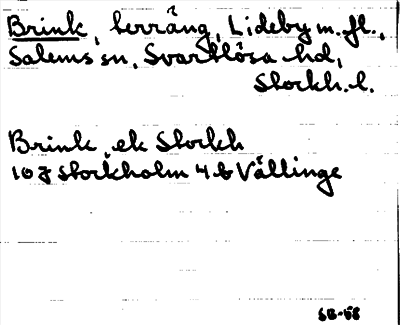 Brink, terräng, Lideby m. fl.,
Salems sn, Svartlösa hd,
Stockh. l.
Brink, ek Stockh
10 J Stockholm 4 b Vällinge